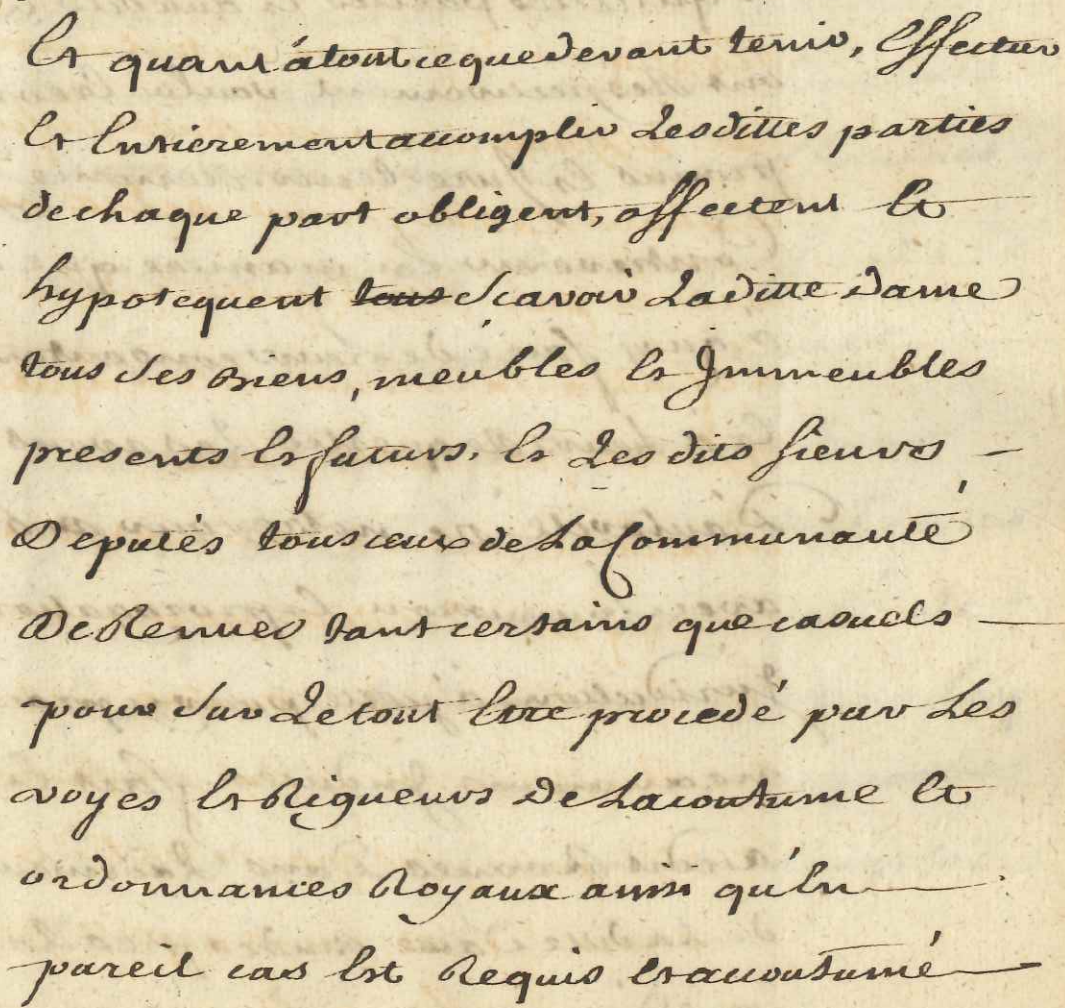 Et quant á tout ce que devant tenir, Effectuer
Et Entierement accomplir Lesdittes parties
de chaque part obligent, affectent Et
hypotequent tous Scavoir Laditte dame
tous Ses Biens, meúbles Et Immeubles
presents Et futurs, Et Lesdits sieurs
Deputés tous ceux de La Communauté
De Revnes tant certains que casuels
pour Sur Le tout Etre procedé par Les
voyes Et Rigueurs de La coutume Et
ordonnances Royaux ainsi qu'En
pareil cas Est Requis Et acoutumé